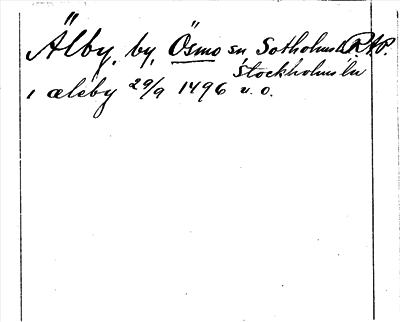 Älby, by, Ösmo sn Sotholms h. R.A.P.
Stockholms län
i ælsby 29/9 1496 u. o.